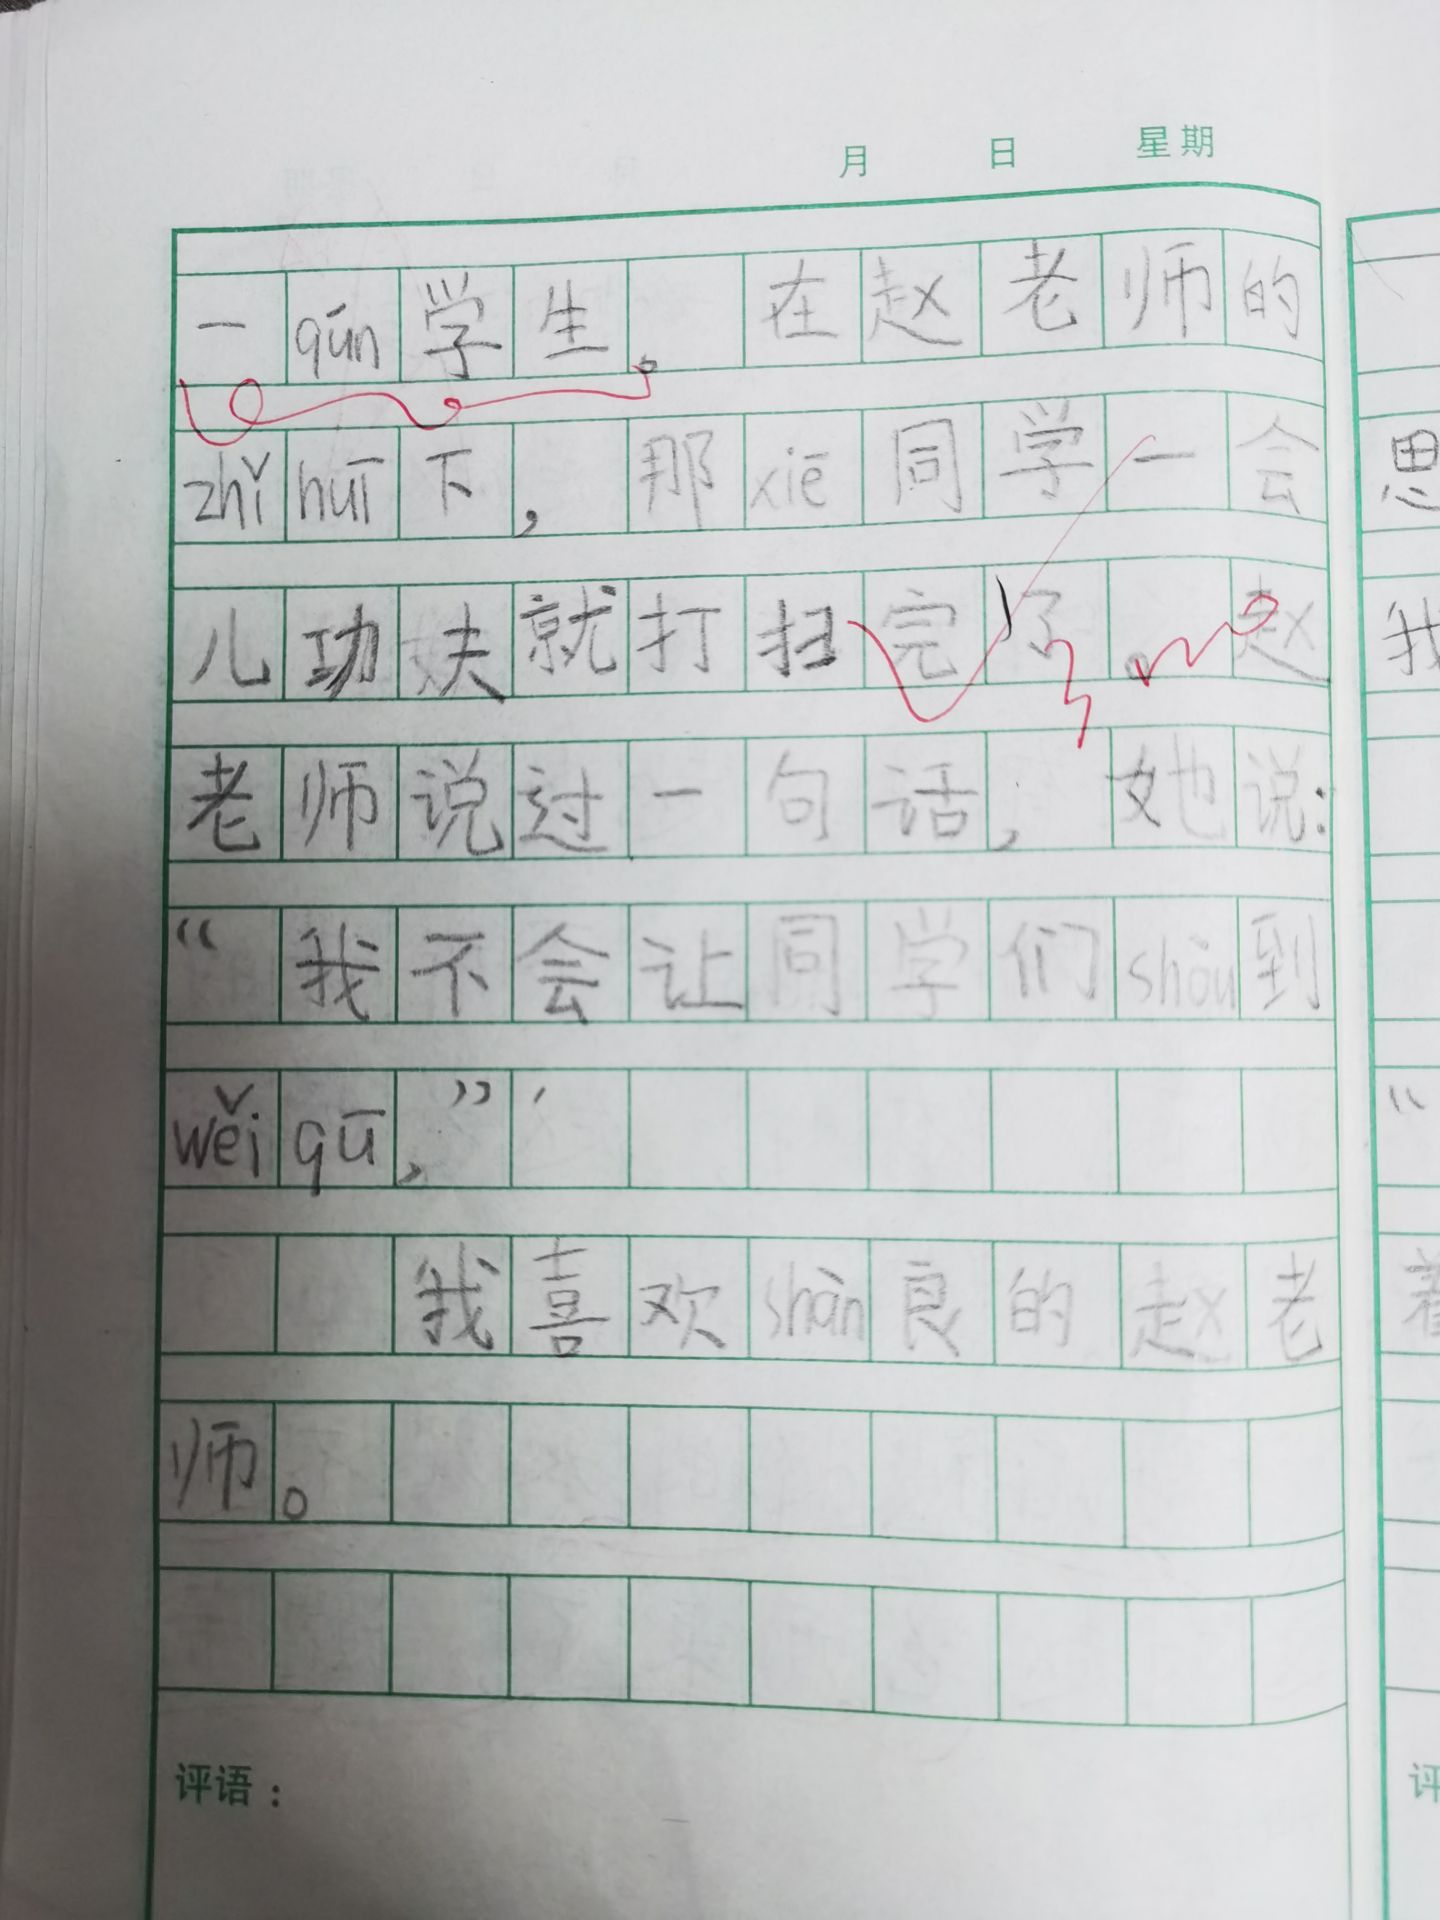 月 日 星期
一qún学生。在赵老师的
zhǐ huī下，那xiē同学一会
儿功夫就打扫完了。赵
老师说过一句话，她说：
“我不会让同学们shòu到
wěi qū，”
我喜欢shàn良的赵老
师。
评语：
思
我
“
着
评